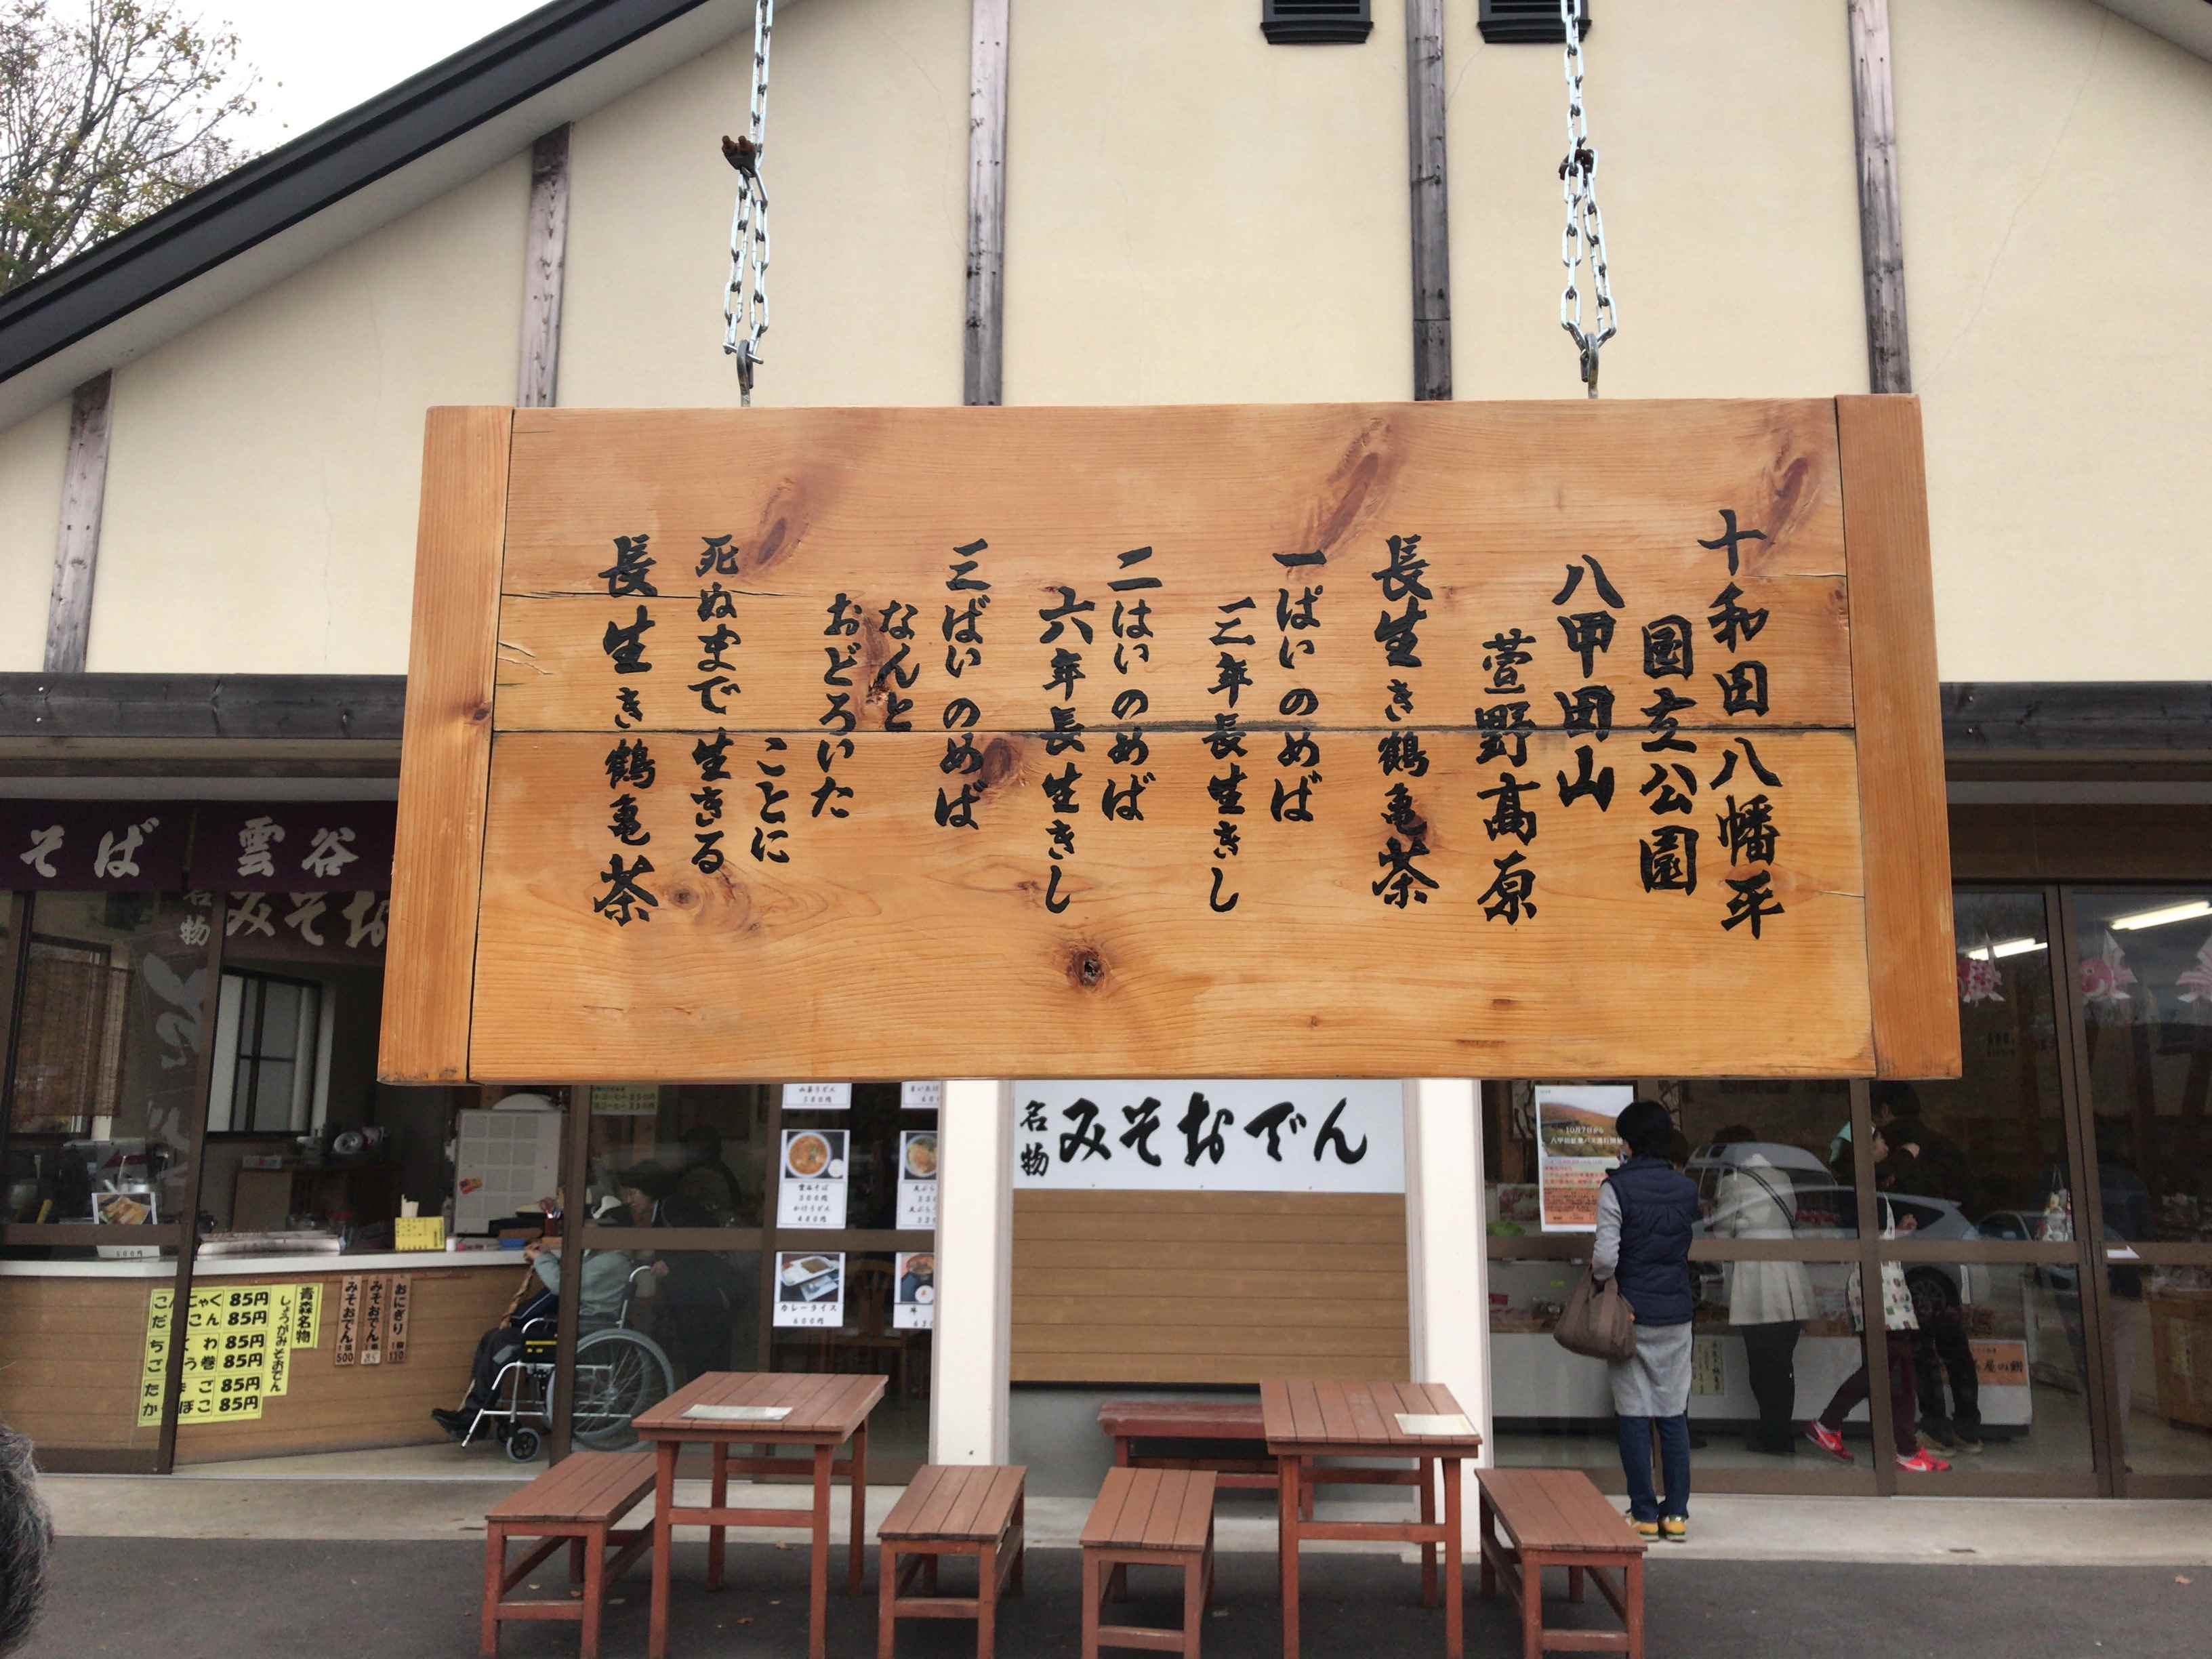 十和田八幡平
国立公園
八甲田山
萱野高原
長生き鶴亀茶
一ぱいのめば
三年長生きし
二はいのめば
六年長生きし
三ばいのめば
なんと
おどろいた
ことに
死ぬまで生きる
長生き鶴亀茶
そば 雲谷
名物
みそお
名物 みそおでん
青森名物
しょうがみそおでん
85円
85円
85円
85円
85円
85円
おにぎり
みそおでん
みそおでん
500
カレーライス
600円
10月7日から